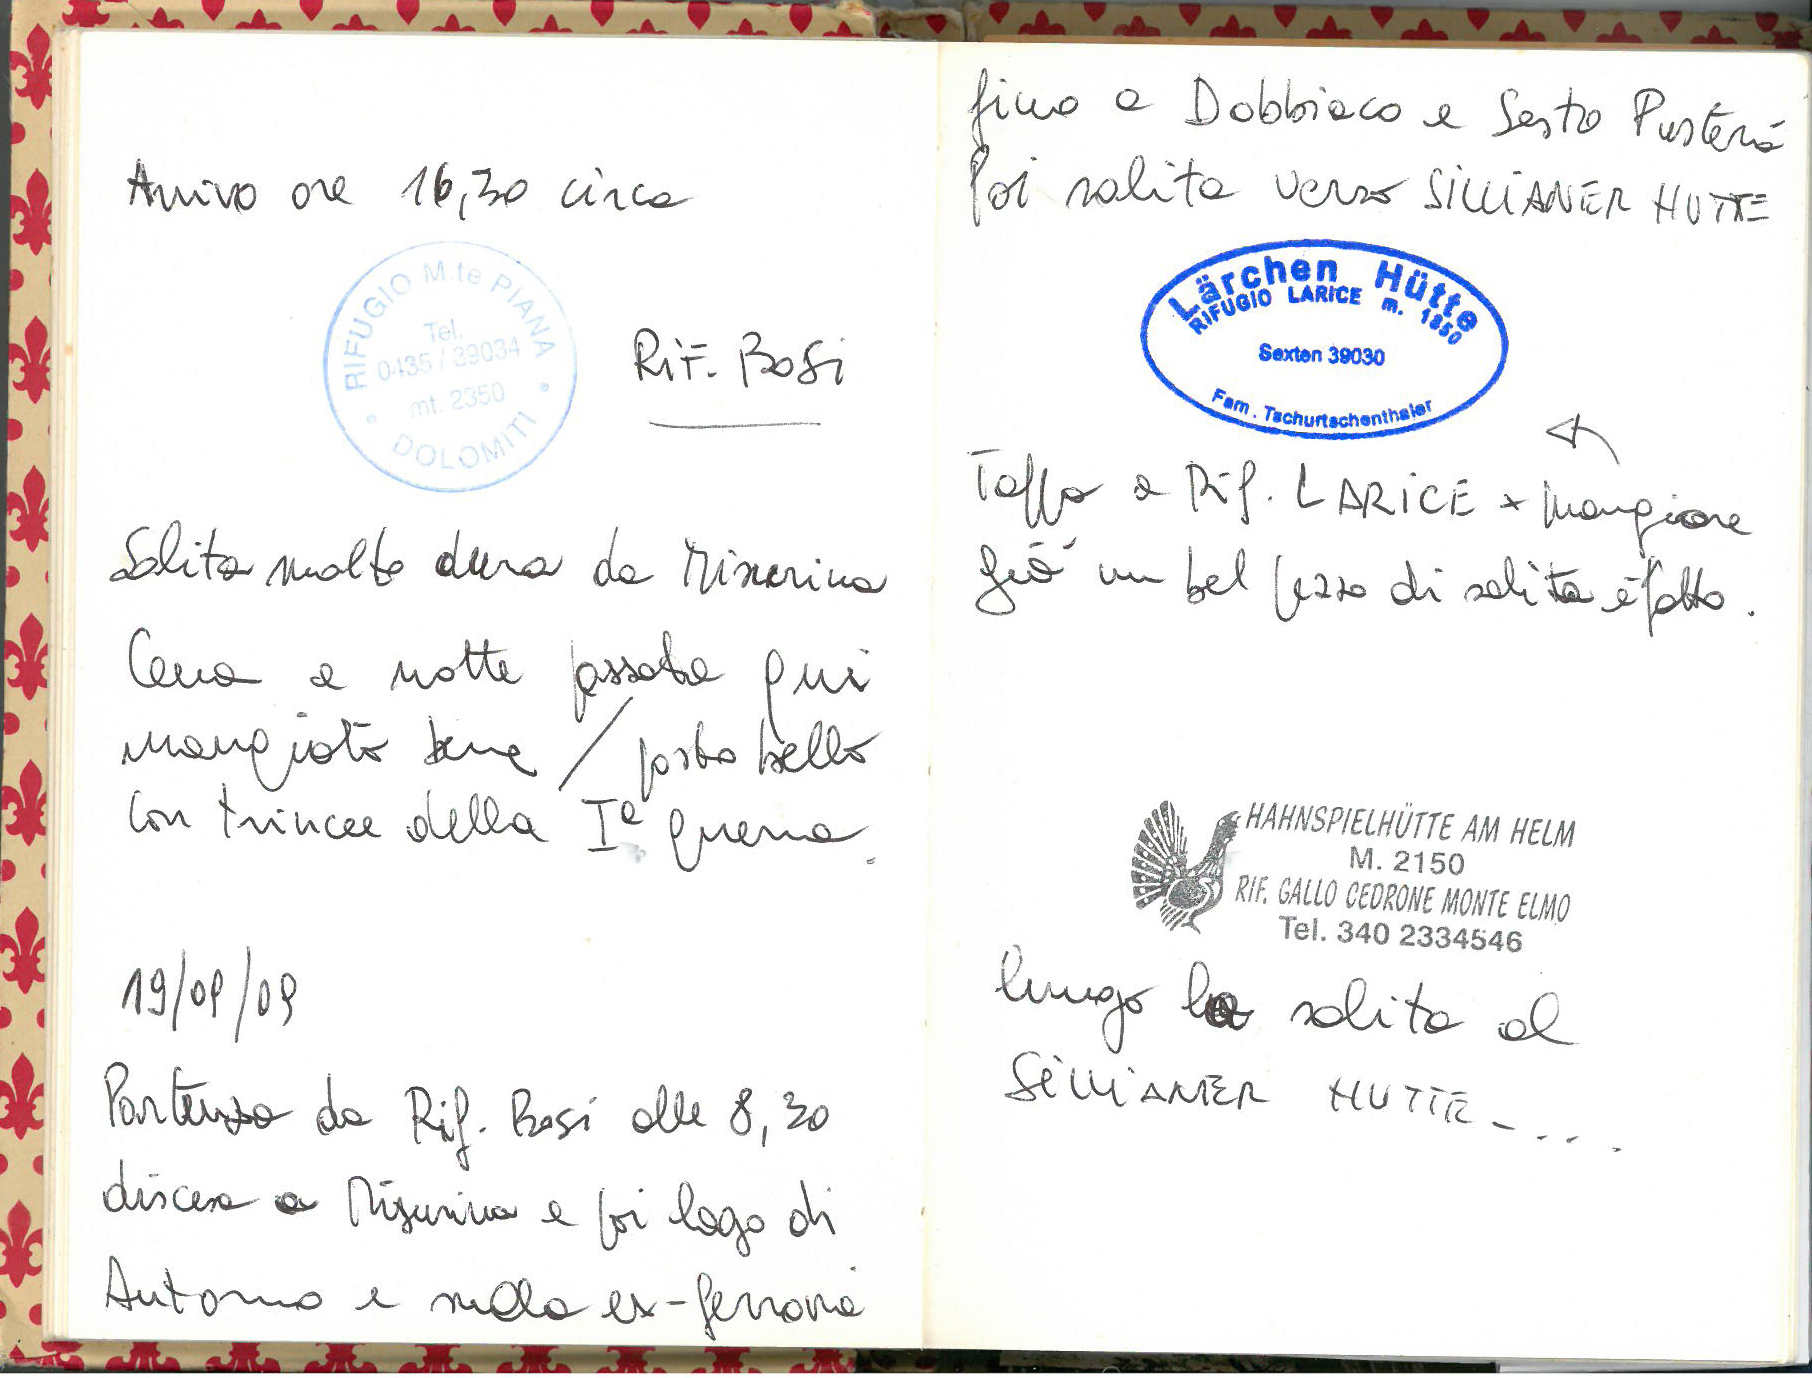 Arrivo ore 16,30 circa
RIFUGIO M.te PIANA
Tel.
0435 / 39034
mt. 2350
DOLOMITI
Rif. Bosi
Salita molto dura da Misurina
Cena e notte passata qui
mangiato bene / posto bello
con trincee della Iª guerra.
19/09/09
Partenza da Rif. Bosi alle 8,30
discesa a Misurina e poi lago di
Antorno e sulla ex-ferrovia
fino a Dobbiaco e Sesto Pusteria
Poi salita verso SILLIANER HUTTE
Lärchen Hütte
RIFUGIO LARICE m. 1850
Sexten 39030
Fam. Tschurtschenthaler
Tappa a Rif. LARICE x mangiare
già un bel pezzo di salita è fatto.
HAHNSPIELHÜTTE AM HELM
M. 2150
RIF. GALLO CEDRONE MONTE ELMO
Tel. 340 2334546
lungo la salita al
SILLIANER HUTTE - . . . .